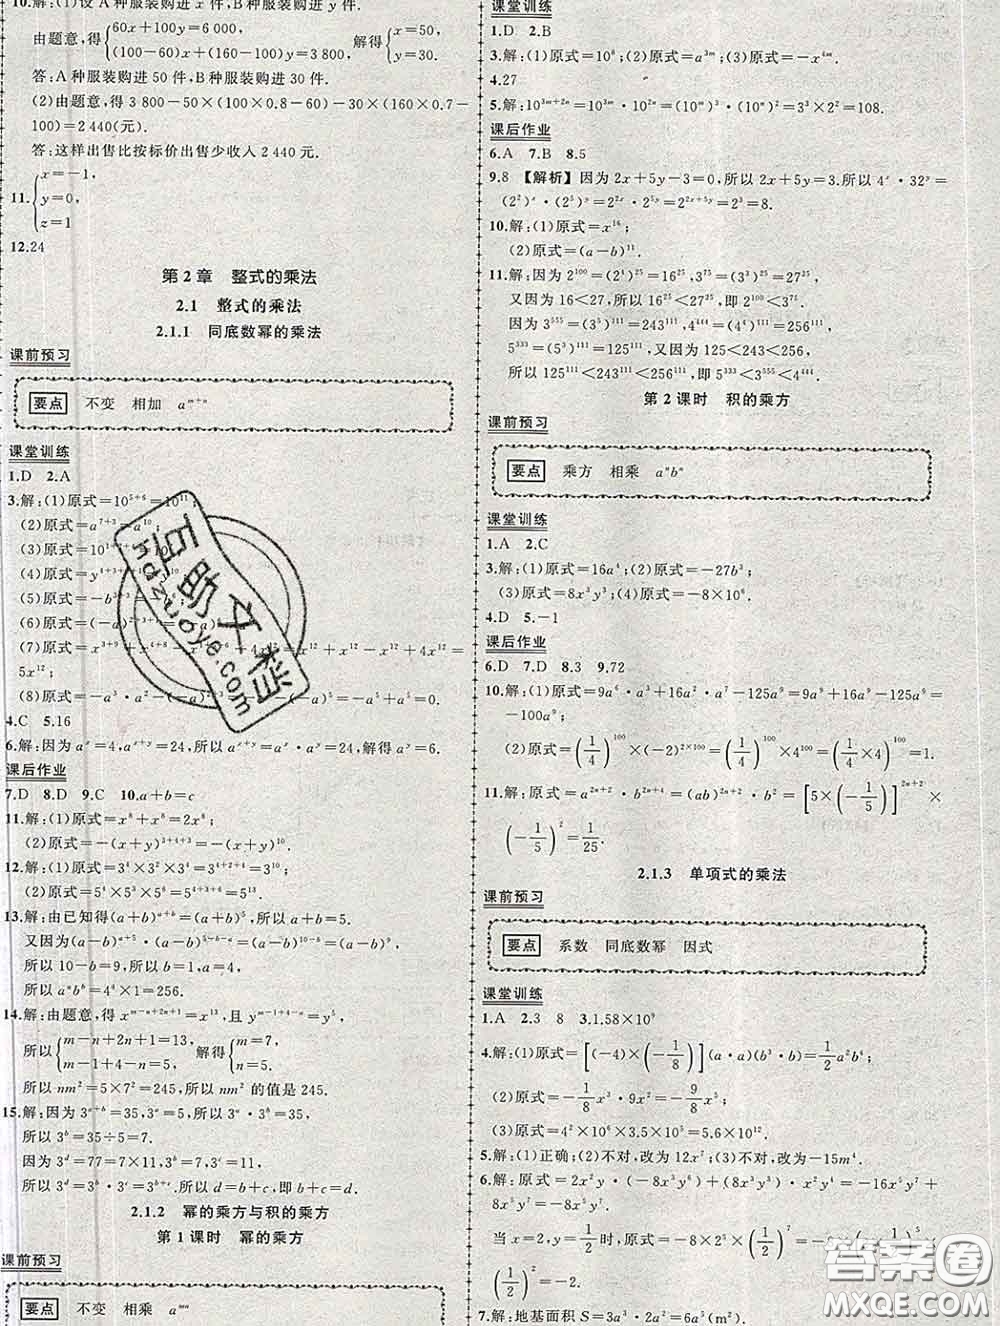 10.解:(1)设A种服装购进x件,B种服装购进y件.
由题意,得{60x+100y=6 000,
(100-60)x+(160-100)y=3 800, 解得{x=50,
y=30.
答:A种服装购进50件,B种服装购进30件.
(2)由题意,得3 800-50×(100×0.8-60)-30×(160×0.7-
100)=2 440(元).
答:这样出售比按标价出售少收入2 440元.
11.{x=-1,
y=0,
z=1
12.24
第2章 整式的乘法
2.1 整式的乘法
2.1.1 同底数幂的乘法
课前预习
要点 不变 相加 a^{m+n}
课堂训练
1.D 2.A
3.解:(1)原式=10^{5+6}=10^{11};
(2)原式=a^{7+3}=a^{10};
(3)原式=10^{1+
(4)原式=y^{4+3+
(5)原式=-b^{
(6)原式=(-
(7)原式=x^{3+9}+x^{ +4x^{ =x^{12}+x^{12}-x^{12}+4x^{12}=
5x^{12};
(8)原式=-a^3·a^2-(-a^5)=-a^5+a^5=0.
4.C 5.16
6.解:因为a^x=4,a^{x+y}=24,所以a^{x+y}=a^x·a^y=24,解得a^y=6.
课后作业
7.D 8.D 9.C 10.a+b=c
11.解:(1)原式=x^8+x^8=2x^8;
(2)原式=-(x+y)^{3+4+3}=-(x+y)^{10}.
12.解:(1)原式=3^4×3^2×3^4=3^{4+2+4}=3^{10}.
(2)原式=5^4×5^3×5^6=5^{4+3+6}=5^{13}.
13.解:由已知得(a+b)^{a+b}=(a+b)^5,所以a+b=5.
又因为(a-b)^{a+5}·(a-b)^{5-b}=(a-b)^{10-b}=(a-b)^9,
所以10-b=9,所以b=1,a=4.
所以a^b b^a=4^1×1=256.
14.解:由题意,得x^{m-n+2n+1}=x^{13},且y^{m-1+4-n}=y^5,
所以{m-n+2n+1=13,
m-1+4-n=5, 解得{m=7,
n=5.
所以nm^2=5×7^2=245,所以nm^2的值是245.
15.解:因为3^{a+b}=35,3^a=5,所以3^a·3^b=35,
所以3^b=35÷5=7.
因为3^d=77=7×11,3^c=11,
所以3^d=3^b·3^c=3^{b+c},所以d=b+c,即b+c=d.
2.1.2 幂的乘方与积的乘方
第1课时 幂的乘方
课前预习
要点 不变 相乘 a^{mn}
课堂训练
1.D 2.B
3.解:(1)原式=10^8;(2)原式=a^{3m};(3)原式=-x^{4m}.
4.27
5.解:10^{3m+2n}=10^{3m}·10^{2n}=(10^m)^3·(10^n)^2=3^3×2^2=108.
课后作业
6.A 7.B 8.5
9.8 【解析】因为2x+5y-3=0,所以2x+5y=3.所以4^x·32^y=
(2^2)^x·(2^5)^y=2^{2x}·2^{5y}=2^{2x+5y}=2^3=8.
10.解:(1)原式=x^{16};
(2)原式=(a-b)^{11}.
11.解:因为2^{100}=(2^4)^{25}=16^{25},3^{75}=(3^3)^{25}=27^{25},
又因为16<27,所以16^{25}<27^{25},即2^{100}<3^{75}.
因为3^{555}=(3^5)^{111}=243^{111},4^{444}=(4^4)^{111}=256^{111},
5^{333}=(5^3)^{111}=125^{111},又因为125<243<256,
所以125^{111}<243^{111}<256^{111},即5^{333}<3^{555}<4^{444}.
第2课时 积的乘方
课前预习
要点 乘方 相乘 a^n b^n
课堂训练
1.A 2.C
3.解:(1)原式=16a^4;(2)原式=-27b^3;
(3)原式=8x^3y^3;(4)原式=-8×10^6.
4.D 5.-1
课后作业
6.D 7.D 8.3 9.72
10.解:(1)原式=9a^6·a^3+16a^2·a^7-125a^9=9a^9+16a^9-125a^9=
-100a^9;
(2)原式=(1/4)^{100}×(-2)^{2×100}=(1/4)^{100}×4^{100}=(1/4×4)^{100}=1.
11.解:原式=a^{2n+2}·b^{2n+4}=(ab)^{2n+2}·b^2=[5×(-1/5)]^{2n+2}×
(-1/5)^2=1/25.
2.1.3 单项式的乘法
课前预习
要点 系数 同底数幂 因式
课堂训练
1.A 2.3 8 3.1.58×10^9
4.解:(1)原式=[(-4)×(-1/8)](a·a)(b^3·b)=1/2a^2b^4;
(2)原式=-1/8x^3·9x^2=-9/8x^5;
(3)原式=4^2×10^6×3.5×10^5=5.6×10^{12}.
5.解:(1)正确;(2)不对,改为12x^7;(3)不对,改为-15m^4.
6.解:原式=2x^2y·(-8x^3y^6)+(8x^3y^6)·x^2y=-16x^5y^7+
8x^5y^7=-8x^5y^7.
当x=2,y=1/2时,原式=-8×2^5×(1/2)^7=
=-2.
7.解:地基面积S=3a^3·2a^2=6a^5(m^2).
互助文档
hdzuoye.com
答案圈
MXQE.COM